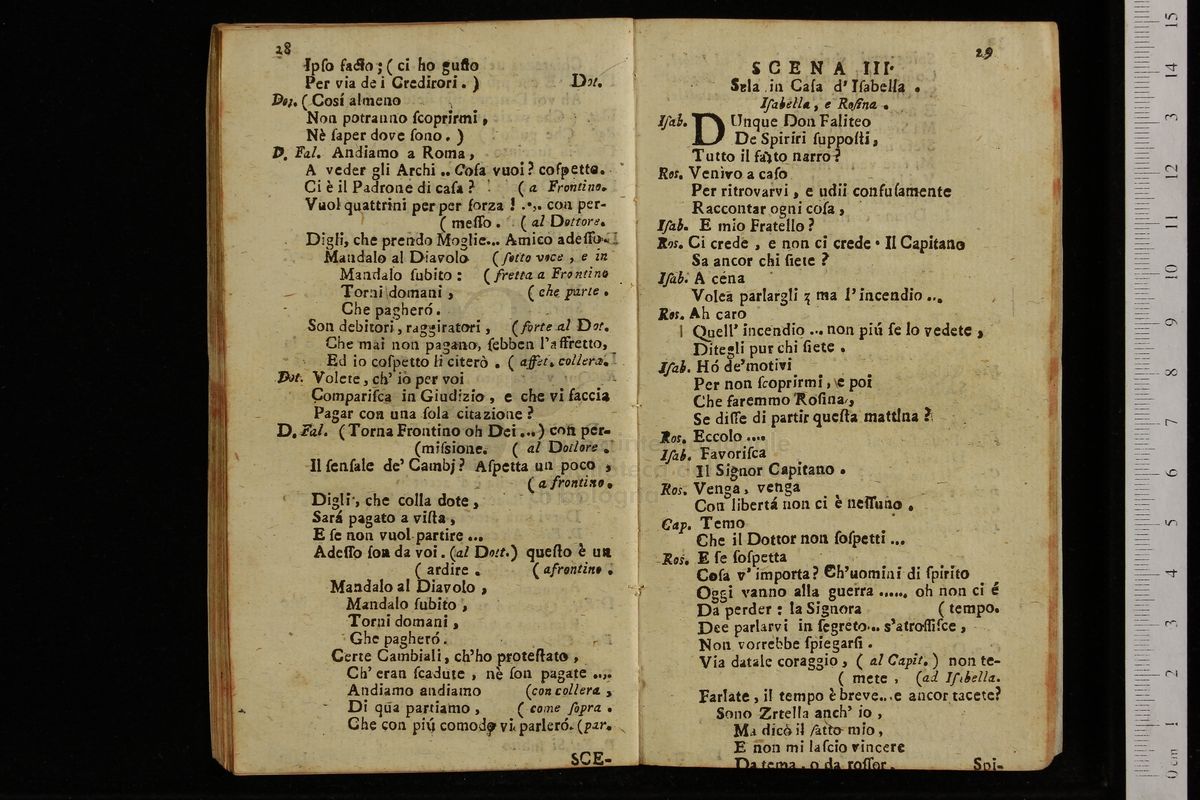 28
Ipſo facto ; ( ci ho guſto
Per via de i Credirori . ) Dot.
Dot. ( Cosí almeno
Non potranno ſcoprirmi ,
Nè ſaper dove ſono . )
D. Fal. Andiamo a Roma ,
A veder gli Archi .. Coſa vuoi ? coſpetto.
Ci è il Padrone di caſa ? ( a Frontino.
Vuol quattrini per per forza ! .... con per-
( meſſo . ( al Dottore.
Digli, che prendo Moglie... Amico adeſſo.
Mandalo al Diavolo ( ſotto voce , e in
Mandalo ſubito : ( fretta a Frontino
Torni domani , ( che parte .
Che pagheró.
Son debitori , raggiratori , ( forte al Dot.
Che mai non pagano, ſebben l'affretto,
Ed io coſpetto li citerò . ( affet. collera.
Dot. Volete, ch' io per voi
Compariſca in Giudizio , e che vi faccia
Pagar con una ſola citazione ?
D. Fal. ( Torna Frontino oh Dei ... ) con per-
(miſsione. ( al Dottore .
Il ſenſale de' Cambj ? Aſpetta un poco ,
( a frontino .
Digli , che colla dote ,
Sará pagato a viſta ,
E ſe non vuol partire ...
Adeſſo ſon da voi . (al Dott.) queſto è un
( ardire . ( afrontino .
Mandalo al Diavolo ,
Mandalo ſubito ,
Torni domani ,
Che pagheró .
Certe Cambiali, ch'ho proteſtato ,
Ch' eran ſcadute , nè ſon pagate ....
Andiamo andiamo (con collera ,
Di qua partiamo , ( come ſopra .
Che con piú comodo vi parleró. (par.
SCE-
29
SCENA III.
Sala in Caſa d' Iſabella .
Iſabella , e Roſina .
Iſab. DUnque Don Faliteo
De Spiriri ſuppoſti ,
Tutto il fatto narro ?
Ros. Venivo a caſo
Per ritrovarvi , e udii confuſamente
Raccontar ogni coſa ,
Iſab. E mio Fratello ?
Ros. Ci crede , e non ci crede . Il Capitano
Sa ancor chi ſiete ?
Iſab. A cena
Volea parlargli ; ma l' incendio ...
Ros. Ah caro
Quell' incendio ... non piú ſe lo vedete ,
Ditegli pur chi ſiete .
Iſab. Hó de' motivi
Per non ſcoprirmi , e poi
Che faremmo Roſina ,
Se diſſe di partir queſta mattina ?
Ros. Eccolo ....
Iſab. Favoriſca
Il Signor Capitano .
Ros. Venga , venga
Con libertá non ci è neſſuno .
Cap. Temo
Che il Dottor non ſoſpetti ...
Ros. E ſe ſoſpetta
Coſa v' importa ? Ch'uomini di ſpirito
Oggi vanno alla guerra ...... oh non ci é
Da perder : la Signora ( tempo.
Dee parlarvi in ſegreto... s'atroſſiſce ,
Non vorrebbe ſpiegarſi .
Via datale coraggio , ( al Capit. ) non te-
( mete , (ad Iſabella.
Farlate , il tempo è breve... e ancor tacete?
Sono Zrtella anch' io ,
Ma dicò il fatto mio ,
E non mi laſcio vincere
Da tema , o da roſſor . Spi-